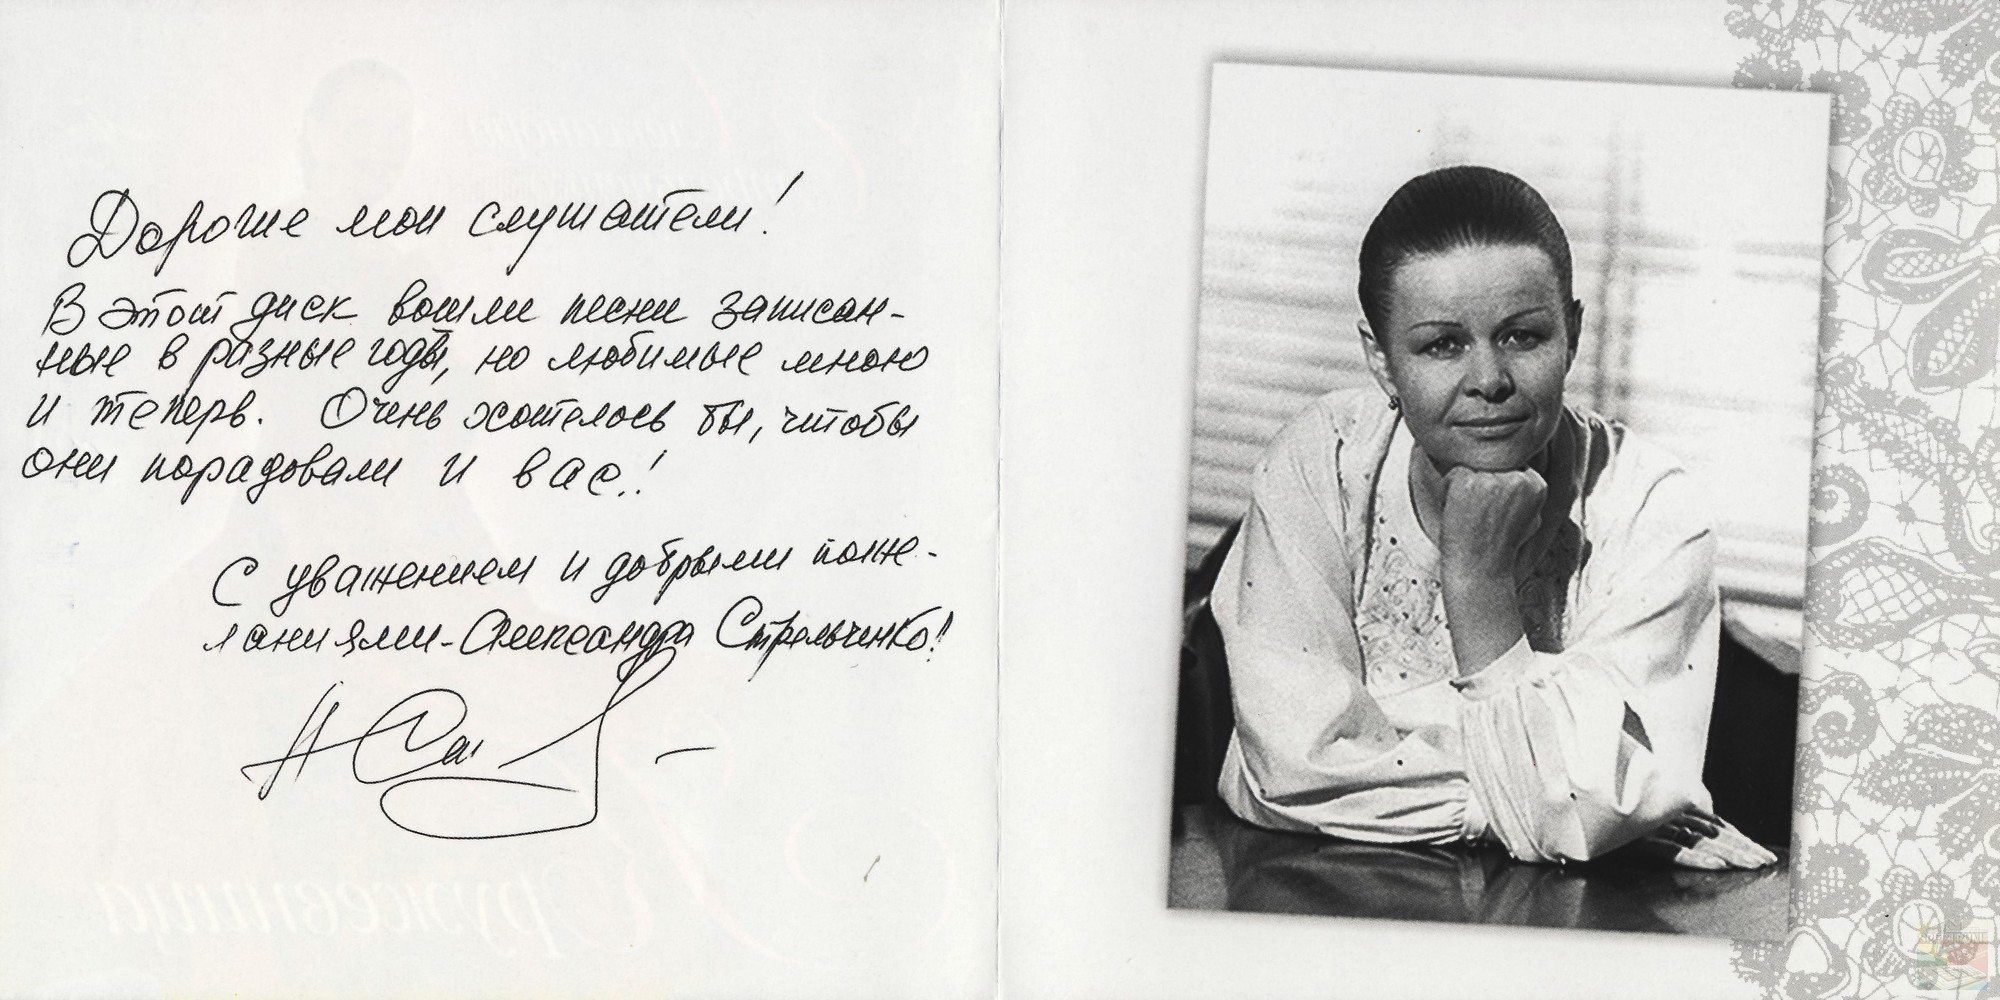 Дорогие мои слушатели!
В этот диск вошли песни записан-
ные в разные годы, но любимые мною
и теперь. Очень хотелось бы, чтобы
они порадовали и вас!
С уважением и добрыми поже-
ланиями - Александра Стрельченко!
Кружевница